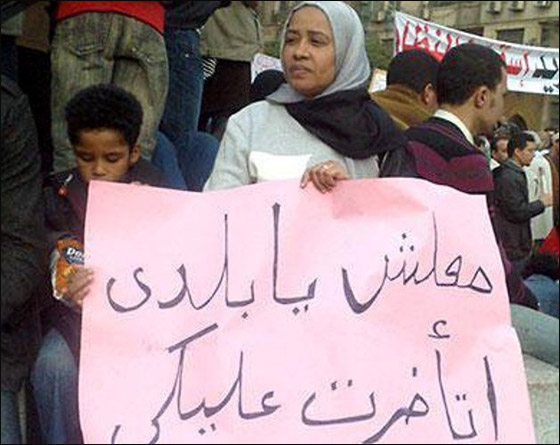 معلش يا بلدى
اتأخرت عليكى